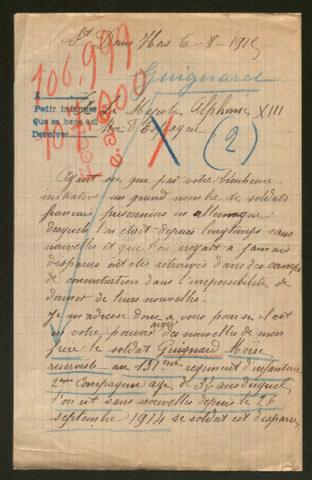 St Denis Hors 6-8-1915
Guignard
106.999
A
Pedir informes
Que se hace así
Devolver
Sa Majesté Alphonse XIII
Roi d'Espagne
(2)
Ayant vu que par votre bienheureuse
initiative un grand nombre de soldats
français prisonniers en allemagne
desquels l'on était depuis longtemps sans
nouvelles et que l'on croyait a jamais
disparus ont étés retrouvés dans des camps
de concentration dans l'impossibilité de
donner de leurs nouvelles.
Je m'adresse donc a vous pour si il est
en votre pouvoir avoir des nouvelles de mon
frère le soldat Guignard Moïse
réserviste au 131eme regiment d'infanterie
2eme Compagnie agé de 32 ans duquel
l'on est sans nouvelles depuis le 26
septembre 1914 ce soldat est disparu